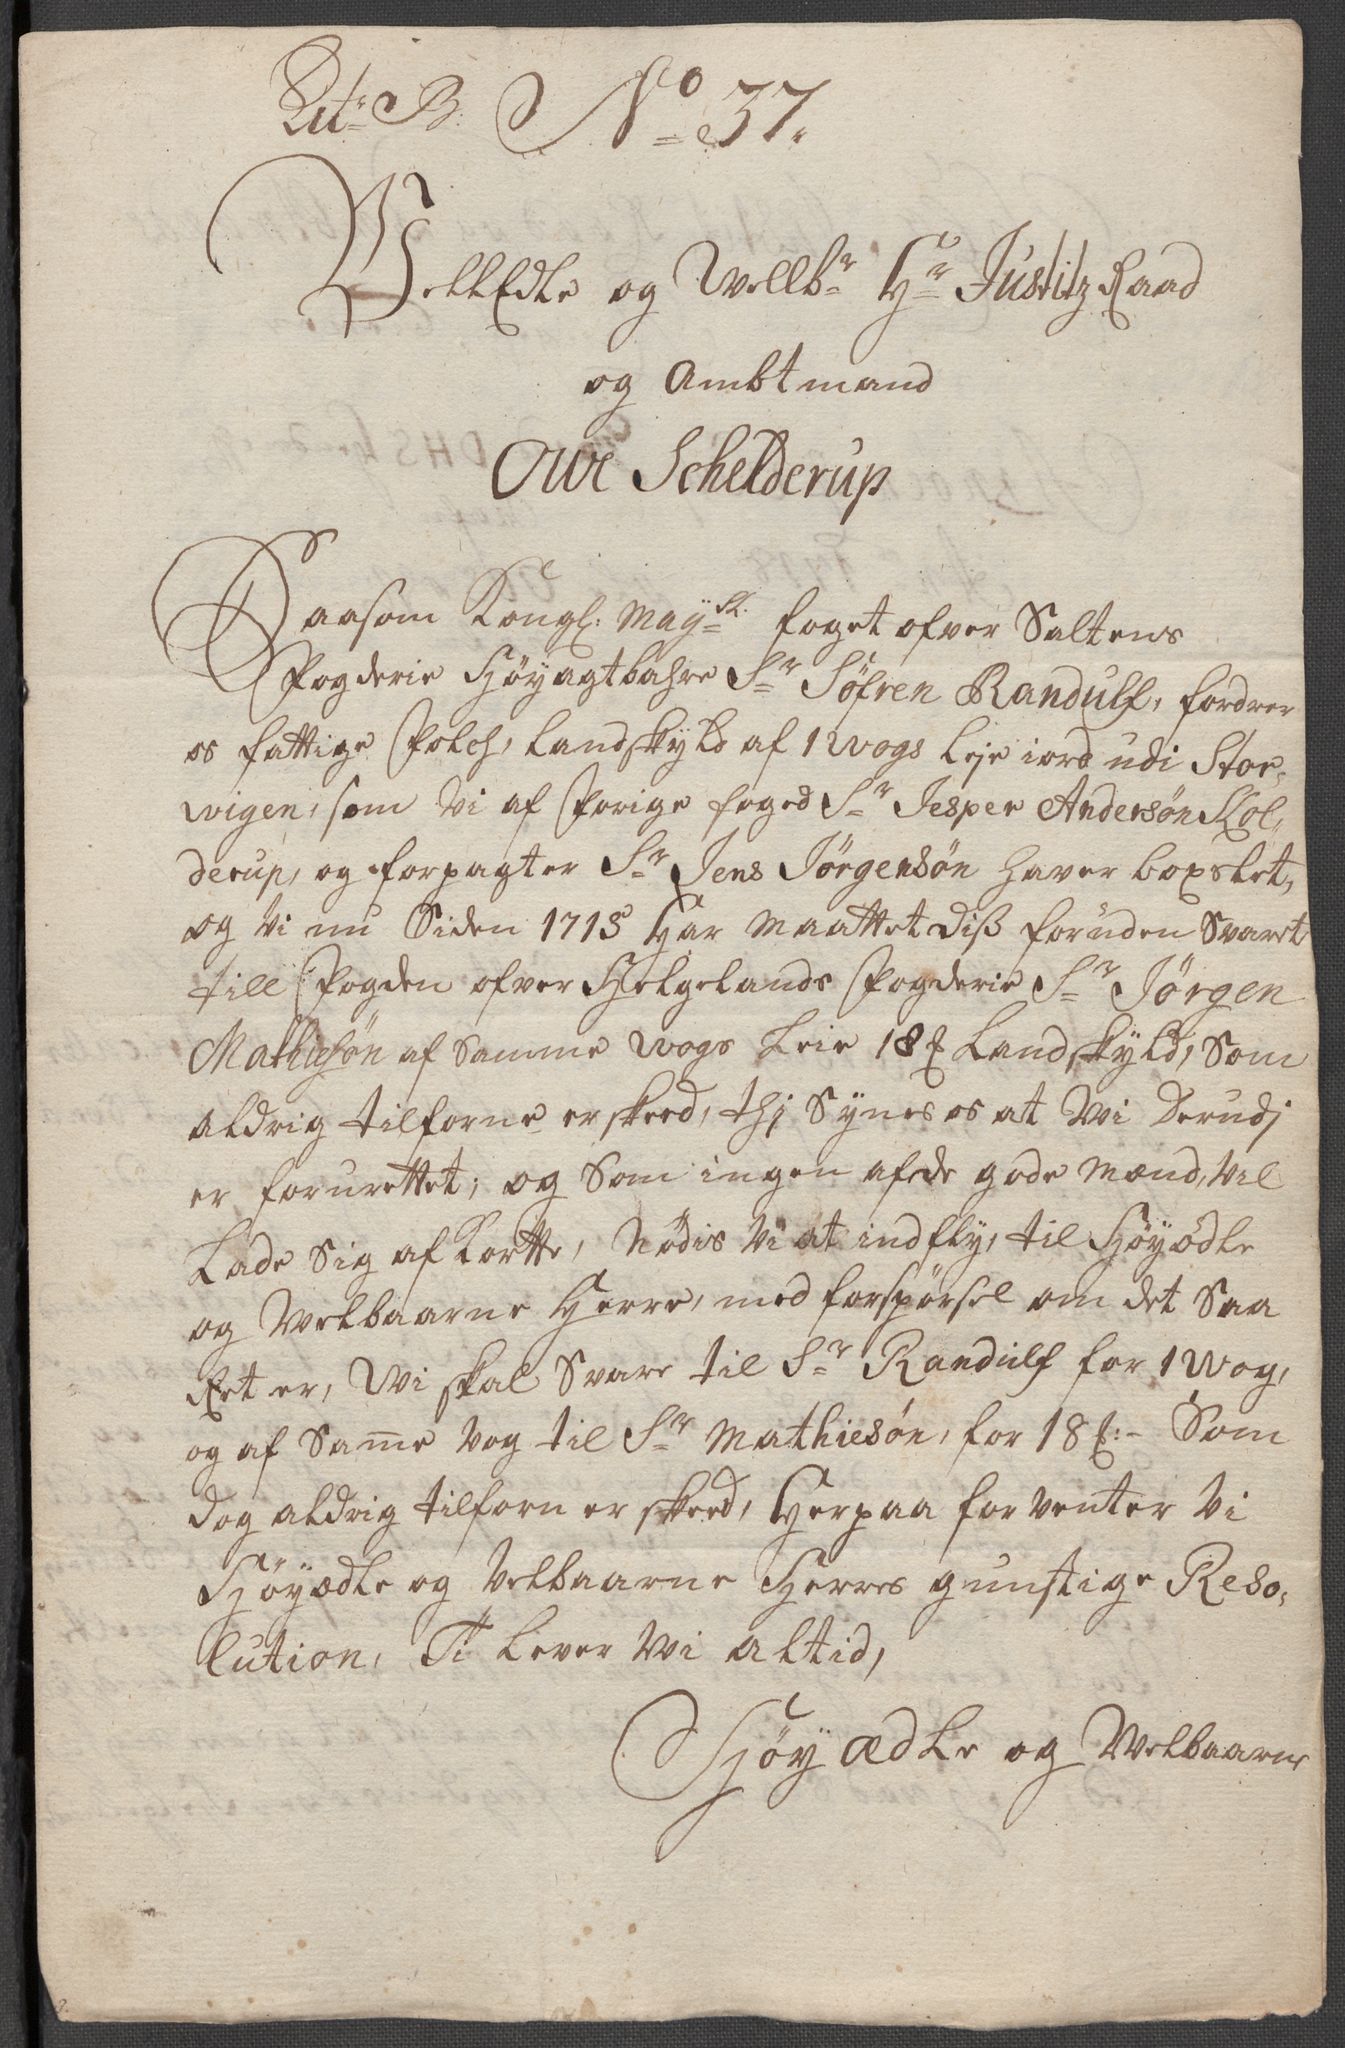 Litr B. No 37.
WelEdle og Wellbr Hr Justitz Raad
og Ambtmand
Owe Schelderup
Saasom Kongl: Mayst. foget ofver Saltens
Fogderie Höyagtbahre Sr Söfren Randulf, fordrer
os fattige folch, Landskyld af 1 Wogs Leje iord udi Stor-
wigen, som Vi af forige foged Sr Jesper Andersön Kol-
derup, og forpagter Sr Jens Jörgensön haver boxslet,
og Vi nu Siden 1713 har maattet diß foruden Svaret
till fogden ofver Helgelands fogderie Sr Jörgen
Mathiesön af Samme Wogs Leie 18 ℔ Landskyld, Som
aldrig tilforne er skeed, thj Synes os at Vi derudj
er forurettet; og Som ingen af de gode Mænd, Vil
Lade Sig af Rette, Nödis Vi at indfly, til Höyædle
og Welbaarne Herre, med forspörsel om det Saa
Ret er, Wi skal Svare til Sr Randulf for 1 Wog,
og af Sam̄e Vog til Sr Mathiesön, for 18 ℔:- Som
dog aldrig tilforn er skeed, Herpaa forventer Vi
Höyædle og Velbaarne Herres gunstige Reso-
lution, Ti Lever Wi altid,
Höyædle og Welbaarne